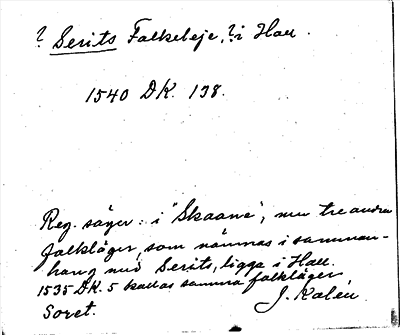 ? Serits Falkeleje, ? i Hall.
1540 DK. 138.
Reg. säger: i "Skaane", men tre andra
falkläger, som nämnas i samman-
hang med Serits, ligga i Hall.
1535 DK. 5 kallas samma falkläger
Soret.
J. Kalén